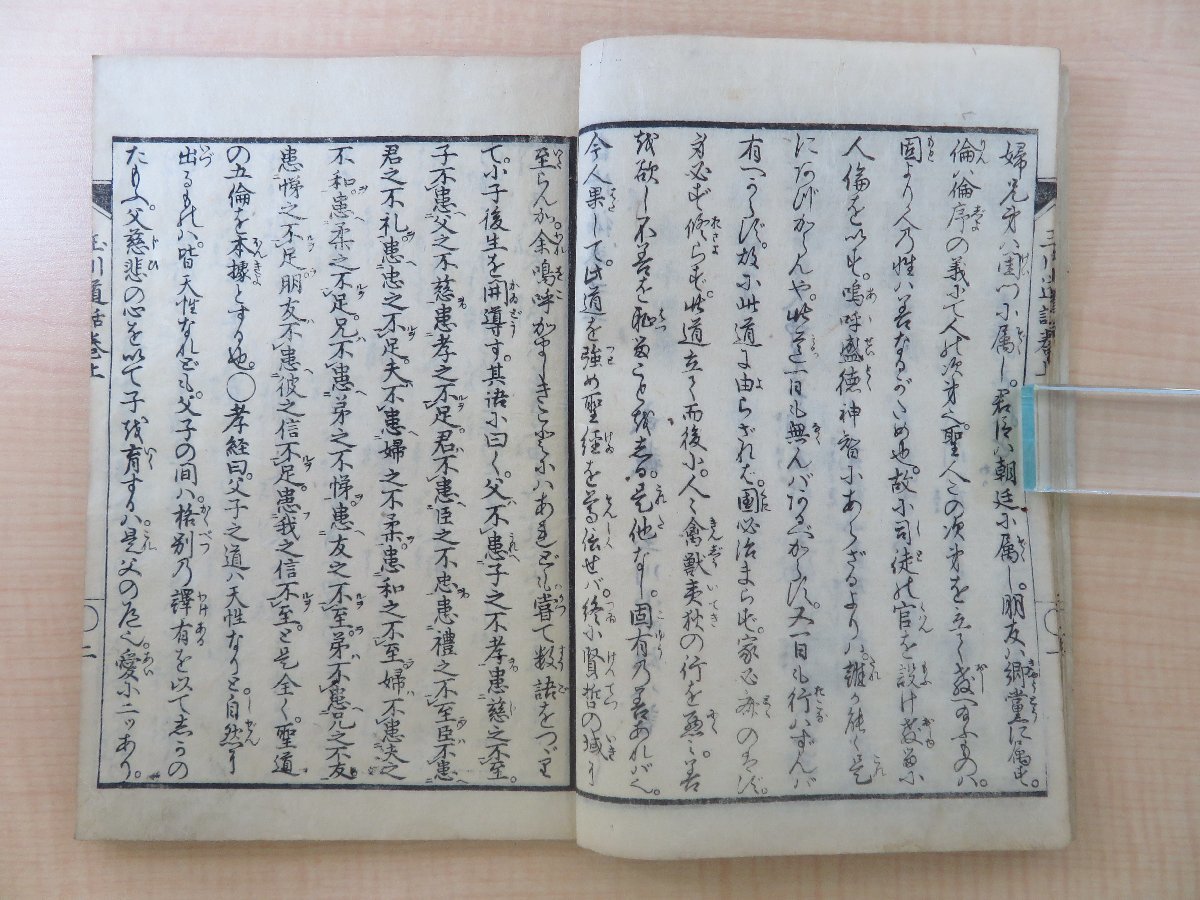 婦兄弟ハ閨門に属し。君臣ハ朝廷に属し。朋友ハ郷党に属す。
倫ハ倫序の義にて人の次第也聖人この次第を立て教へ給ふものハ。
固より人の性ハ善なるがため也。故に司徒の官を設け教るに
人倫を以す。嗚呼盛徳神智にあらざるよりハ。誰か能く是
にあづからんや。此道一日も無んバあるべからず。又一日も行ハずんバ
有べからず。故に此道に由らざれば。国必治まらず。家必斉のはず。
身必ず脩らず。此道立て而後に。人々禽獣夷狄の行を悪ミ。善
を欲し不善を恥ることを知る。是他なし。固有の善あれバ也。
今人果して。此道を強め聖経を尊信せバ。終に賢哲の域に
至らんか。余嗚呼がましきことにハあれども嘗て数語をつゞり
て。小子後生を開導す。其語に曰く。父不患子之不孝患慈之不至。
子不患父之不慈患孝之不足。君不患臣之不忠患禮之不至臣不患
君之不礼患忠之不足夫不患婦之不柔患和之不至婦不患夫之
不和患柔之不足。兄不患弟之不悌患友之不至弟不患兄之不友
患悌之不足朋友不患彼之信不足患我之信不至。と是全く聖道
の五倫を本拠とする也。〇孝経曰。父子之道ハ天性なりと自然に
出るものハ皆天性なれども。父子の間ハ格別の譯有を以てしかの
たもふ父慈悲の心を以て子を育するハ是父の道也愛に二ッあり。
玉川道話巻上
〇二